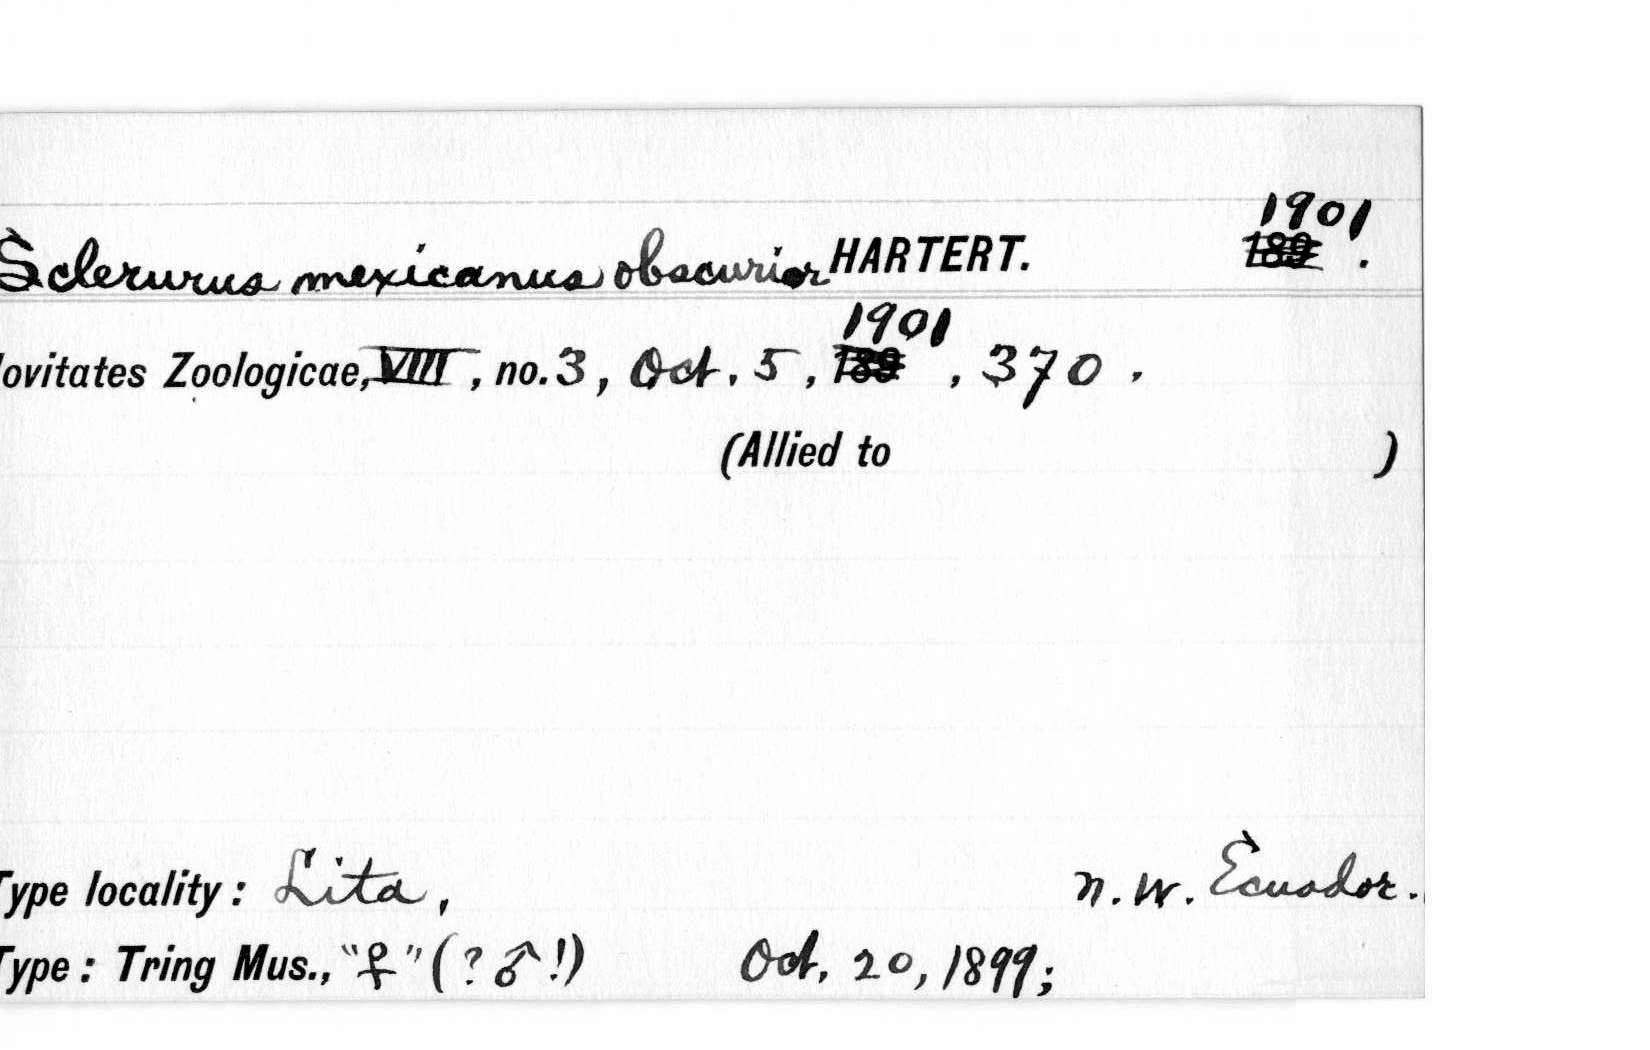 Sclerurus mexicanus obscurior HARTERT. 1901 189 .
ovitates Zoologicae, VIII, no. 3, Oct. 5, 1901 189 , 370 .
(Allied to )
Type locality: Lita, n.w. Ecuador.
Type: Tring Mus., "♀" (? ♂ !) Oct. 20, 1899;